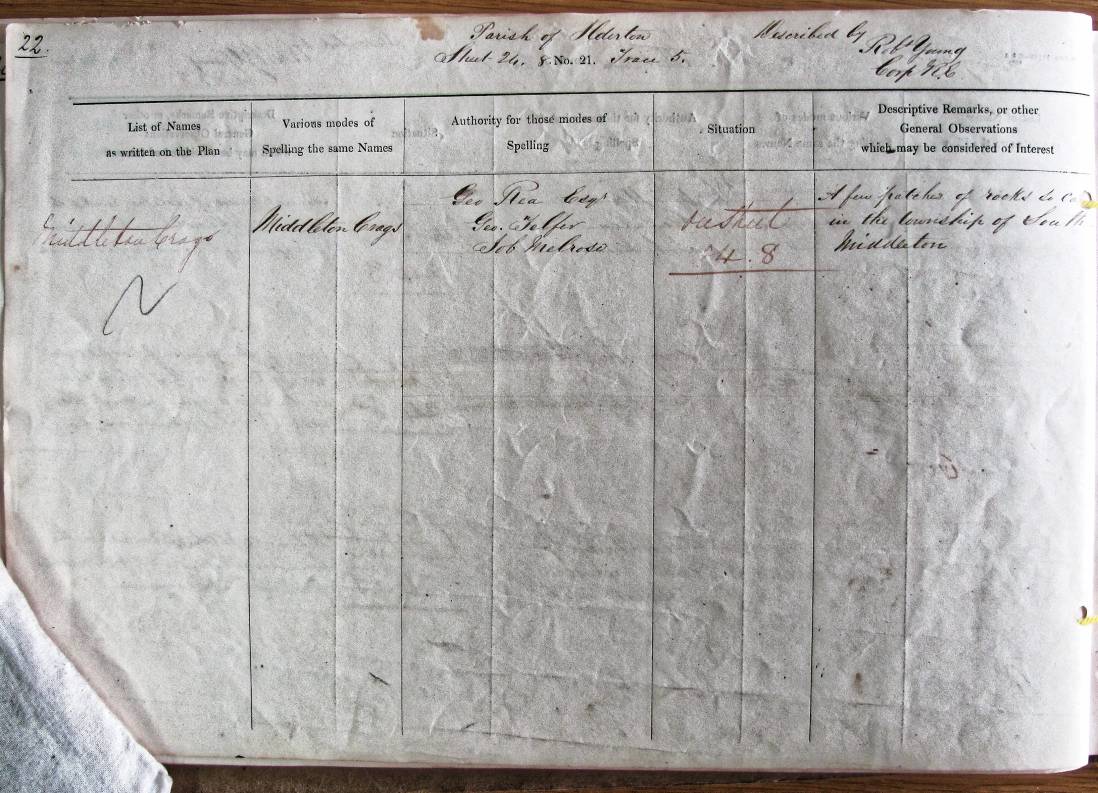 22.
Parish of Ilderton
Sheet 24. 8. No. 21. Trace 5.
Described by
Robt Young
Corp R.E
List of Names
as written on the Plan
Various modes of
Spelling the same Names
Authority for those modes of
Spelling
Situation
Descriptive Remarks, or other
General Observations
which may be considered of Interest
Middleton Crags
Middleton Crags
Geo Rea Esqr
Geo. Telfer
Job Melrose
24.8
A few patches of rocks so
in the township of South
Middleton